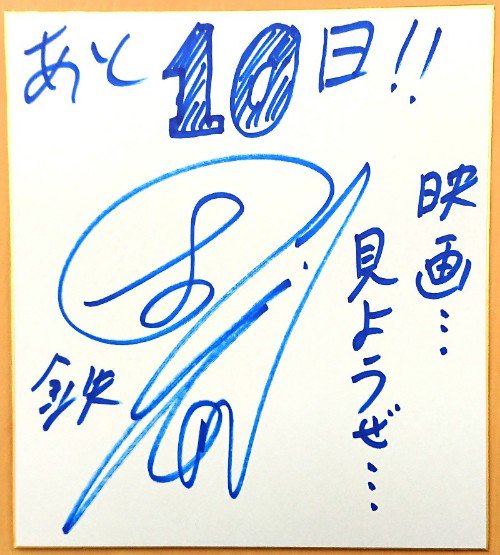 あと10日!!
映画…
見ようぜ…
鉄